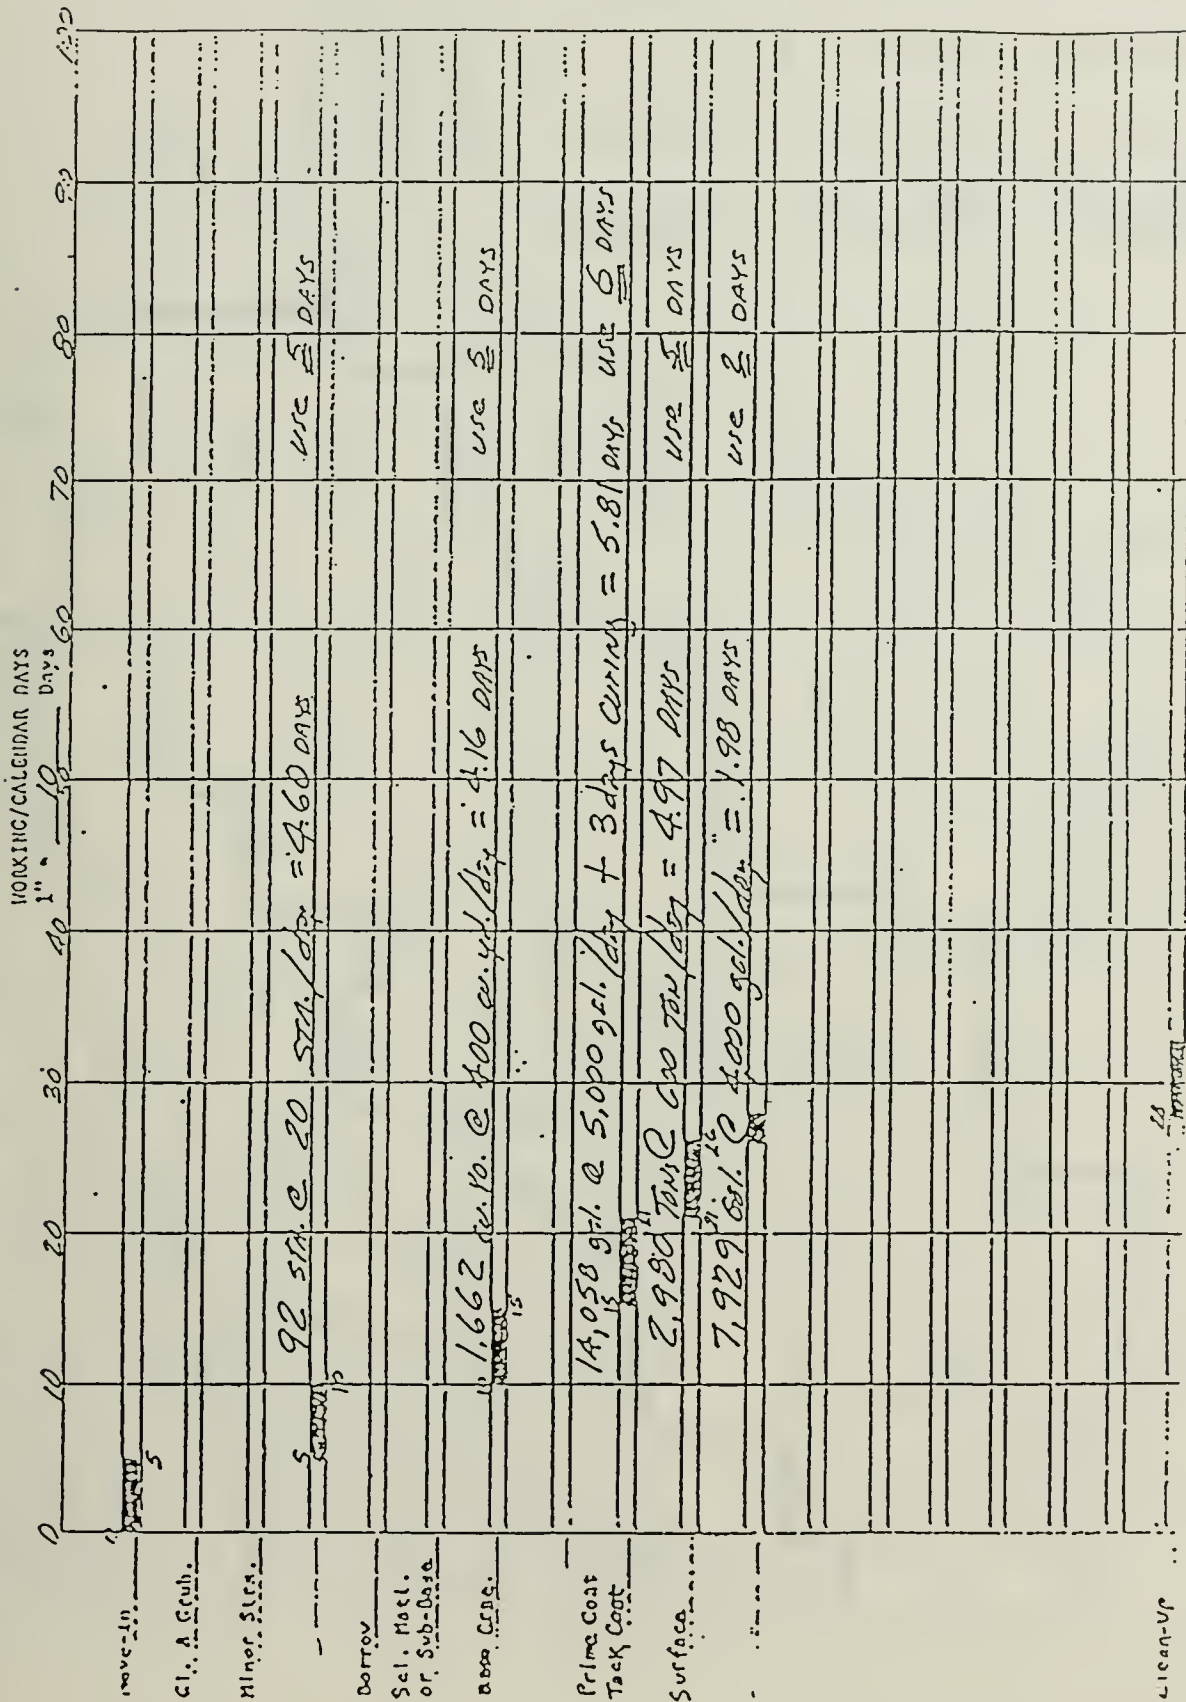 WORKING/CALENDAR DAYS
1" = 10 Days
0 10 20 30 40 50 60 70 80 90 100
move-in
0
5
Cl. & Grub.
Minor Strs.
92 STA. @ 20 STA./day = 4.60 DAYS use 5 DAYS
5
10
Borrow
Sel. Matl.
or Sub-Base
Base Crse.
1,662 cu. yd. @ 400 cu. yd./day = 4.16 DAYS use 5 DAYS
10
15
Prime Coat
Tack Coat
14,058 gal. @ 5,000 gal./day + 3 days curing = 5.81 DAYS use 6 DAYS
15
21
Surface
2,980 TONS @ 600 TON/day = 4.97 DAYS use 5 DAYS
21
26
7,929 Gal. @ 4,000 gal./day = 1.98 DAYS use 2 DAYS
28
Clean-up